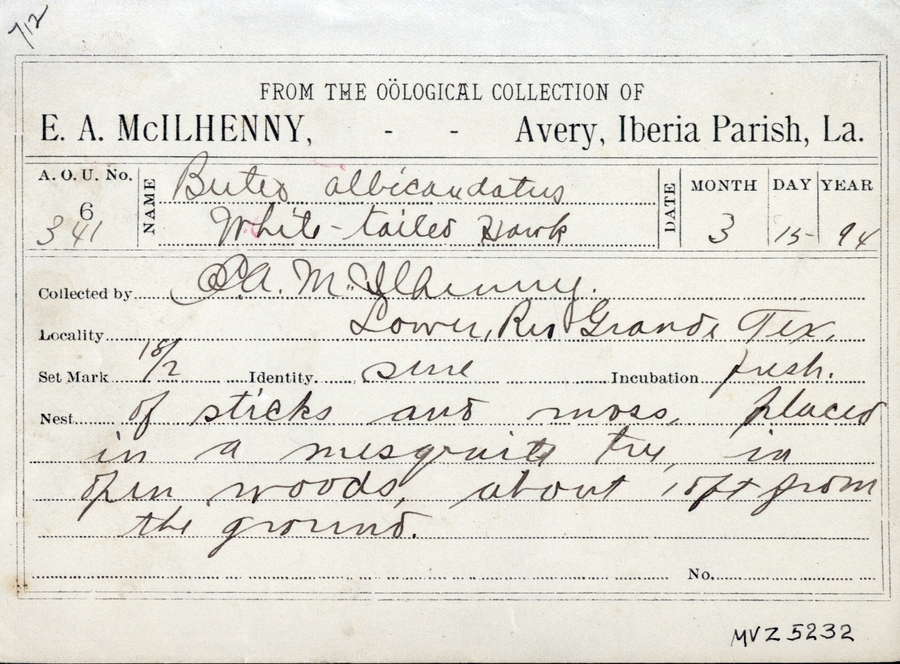 712
FROM THE OÖLOGICAL COLLECTION OF
E. A. McILHENNY, - - Avery, Iberia Parish, La.
A. O. U. No. NAME Buteo albicaudatus DATE MONTH DAY YEAR
6
341 White-tailed Hawk 3 15 94
Collected by E.A. McIlhenny.
Locality Lower, Rio Grande Tex.
Set Mark 18/2 Identity. sure Incubation fresh.
Nest of sticks and moss, placed
in a mesquite tree, in
open woods, about 10ft from
the ground.
No.
MVZ 5232